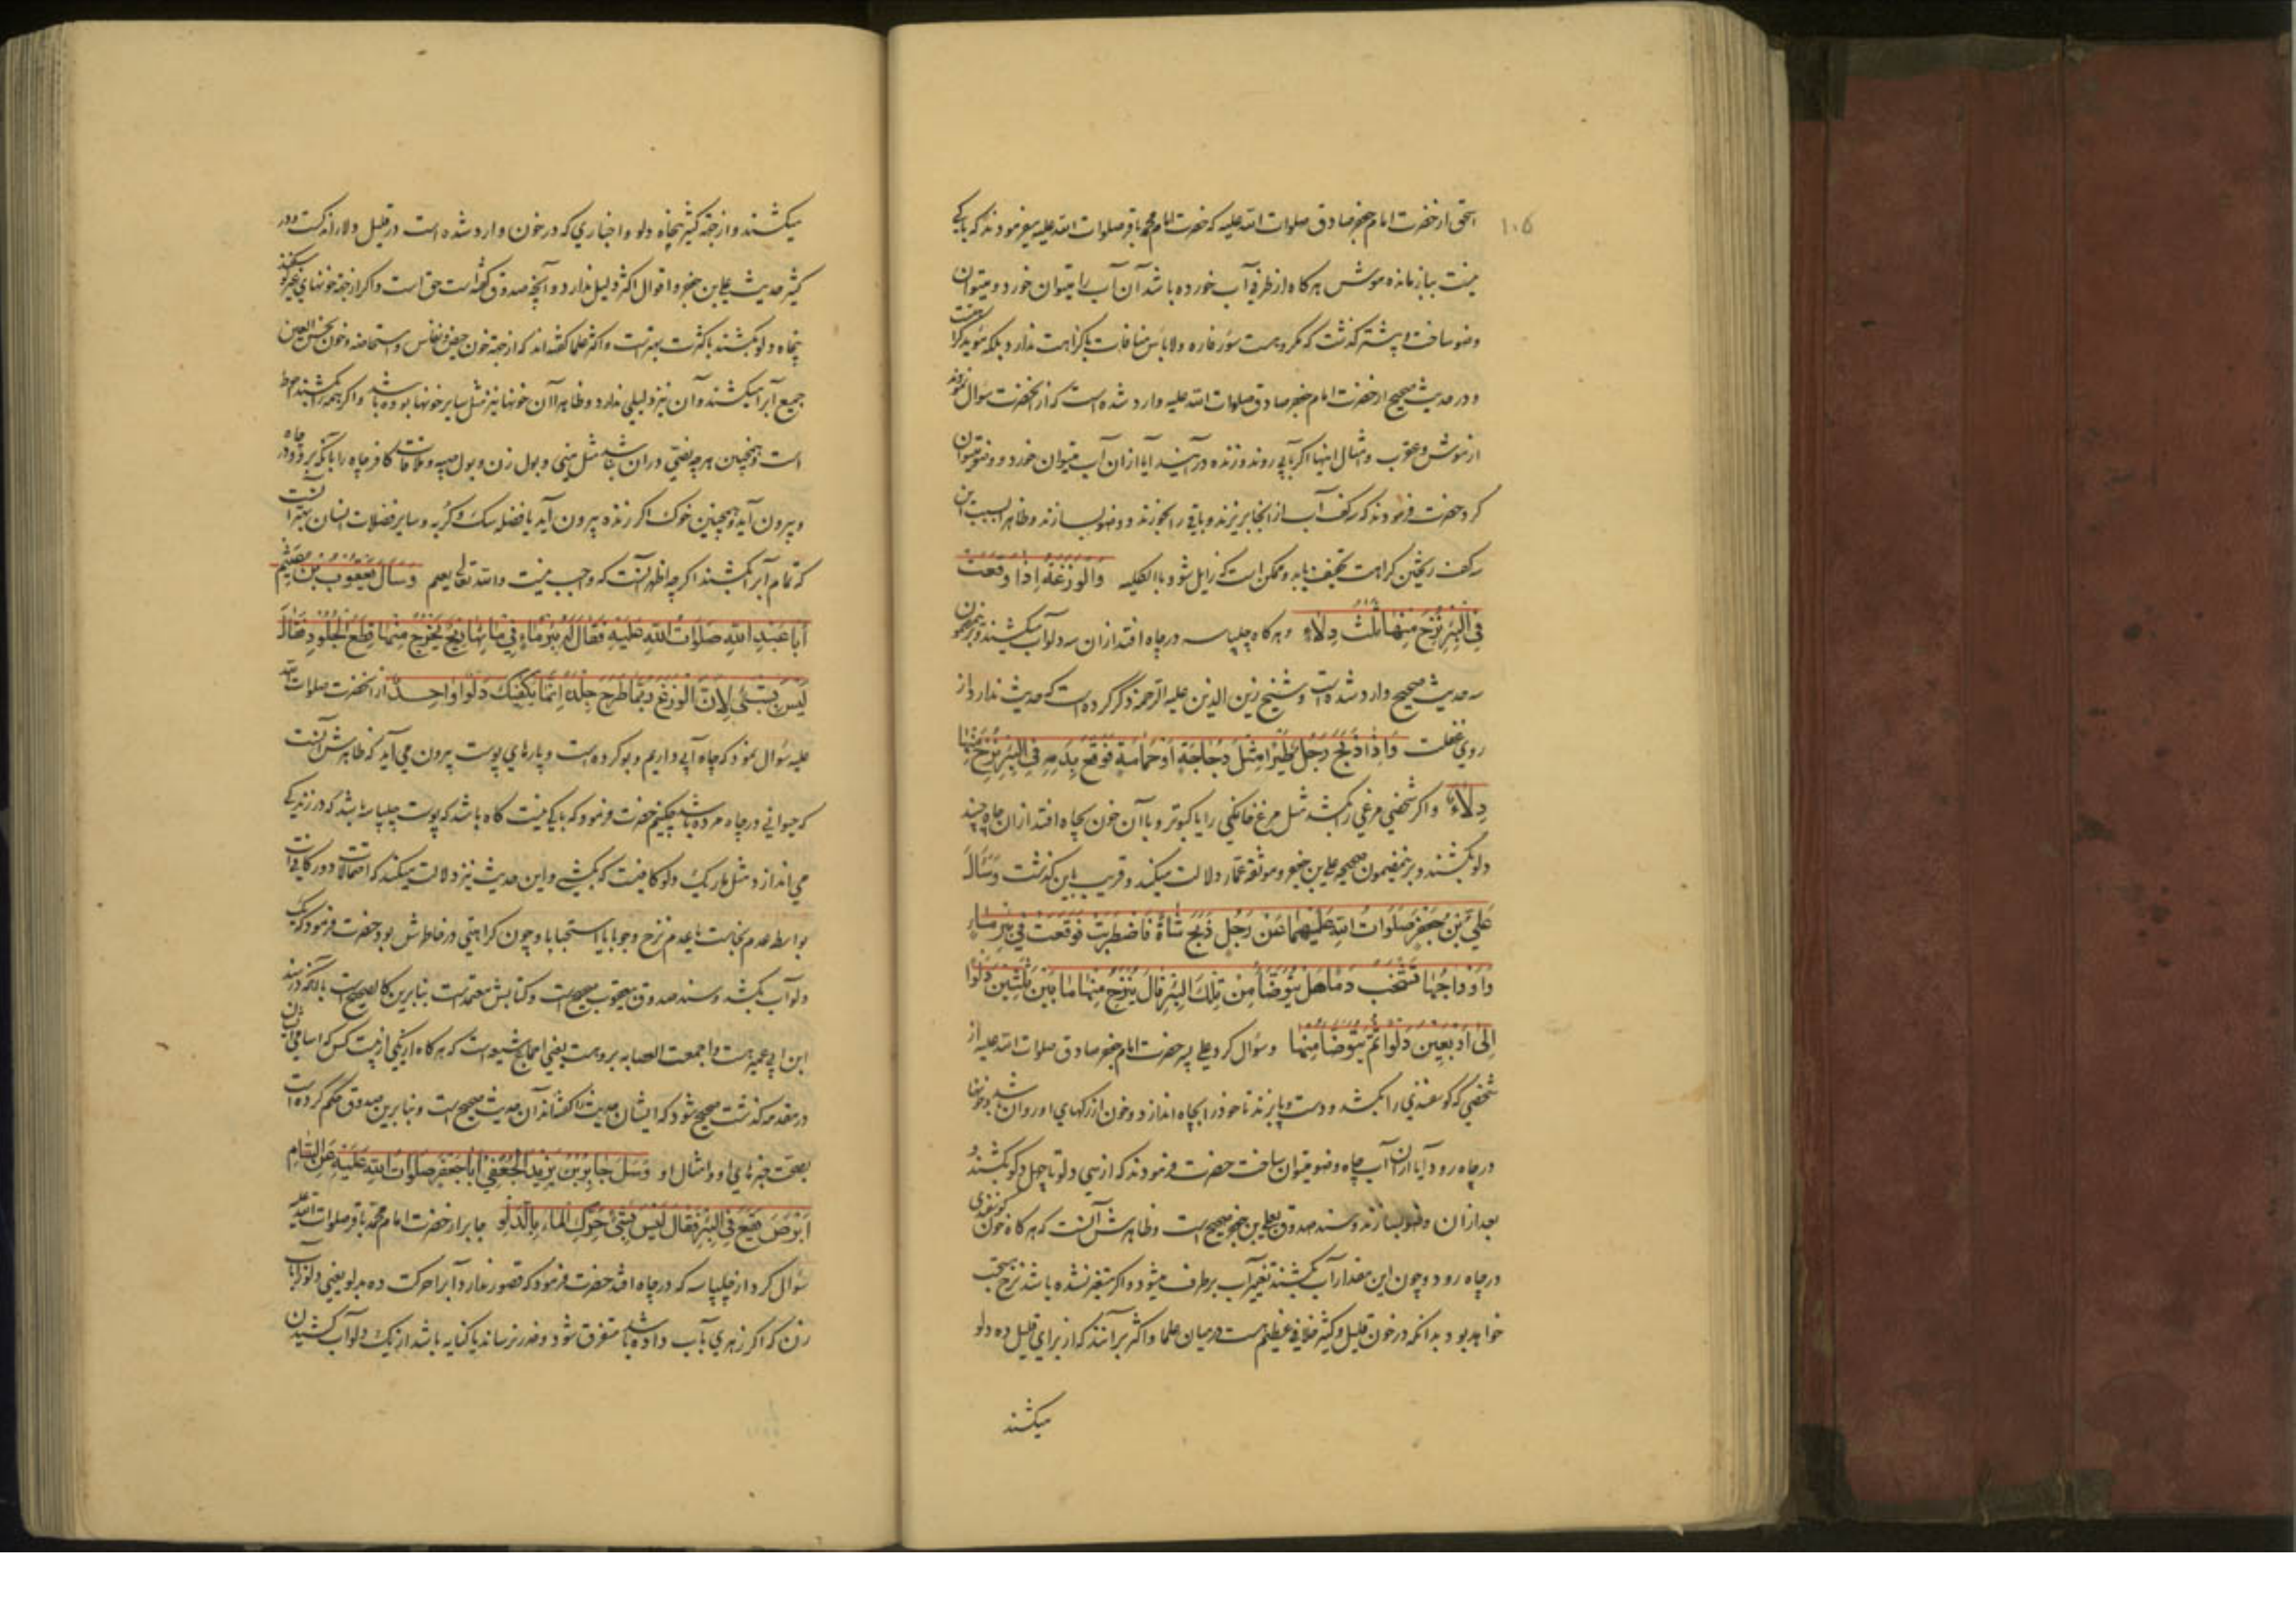 ۱۰۵
اسحق از حضرت امام جعفر صادق صلوات الله علیه که حضرت امام محمد باقر صلوات الله علیه میفرمودند که باکی
نیست بباز مانده موش هرکاه از ظرف آب خورده باشد آن آب را میتوان خورد و میتوان
وضو ساخت و پیشتر کذشت که مکروهست سؤر فاره و لاباس منافات با کراهت ندارد بلکه مؤید کراهت
و در حدیث صحیح از حضرت امام جعفر صادق صلوات الله علیه وارد شده است که از انحضرت سؤال نمودند
از موش و عقرب و امثال اینها اکر بآبی روند و زنده در آیند آیا از آن آب میتوان خورد و وضو میتوان
کرد حضرت فرمودند که سه کف آب از انجا بریزند و باقی را بخورند و وضو بسازند و ظاهرا بسبب این
سه کف ریختن کراهت تخفیف یابد و ممکن است که زایل شود بالکلیه وَالوَزَغَةُ اِذا وَقَعَت
فِی البِئرِ نُزِحَ مِنها ثَلٰثُ دِلاءٍ و هرکاه چلپاسه در چاه افتد از ان سه دلو آب میکشند و برین مضمون
سه حدیث صحیح وارد شده است و شیخ زین الدین علیه الرحمه ذکر کرده است که حدیث ندارد از
روی غفلت وَاِذا ذَبَحَ رَجُلٌ طَیرًا مِثلَ دَجاجَةٍ اَو حَمامَةٍ فَوَقَعَ بِدَمِهِ فِی البِئرِ نُزِحَ مِنها
دِلاءٌ و اکر شخصی مرغی را بکشد مثل مرغ خانکی را یا کبوتر و با آن خون بچاه افتد از ان چاه چند
دلو بکشند و بر اینمضمون صحیحه علی بن جعفر و موثقه عمار دلالت میکند و قریب باین کذشت وَسَاَلَ
عَلِیُّ بنُ جَعفَرٍ صَلَواتُ اللهِ عَلَیهِما عَن رَجُلٍ ذَبَحَ شاةً فَاضطَرَبَت فَوَقَعَت فی بِئرِ ماءٍ
وَاَوداجُها تَشخَبُ دَمًا هَل یُتَوَضَّأُ مِن تِلکَ البِئرِ قالَ یُنزَحُ مِنها ما بَینَ ثَلٰثینَ دَلوًا
اِلی اَربَعینَ دَلوًا ثُمَّ یُتَوَضَّأُ مِنها و سؤال کرد علی پسر حضرت امام جعفر صادق صلوات الله علیه از
شخصی که کوسفندی را بکشد و دست و پا بزند تا خود را بچاه اندازد و خون از رکهای او روان باشد و خونها
در چاه رود آیا از ان آب چاه وضو میتوان ساخت حضرت فرمودند که از سی دلو تا چهل دلو بکشند و
بعد از ان وضو بسازند و سند صدوق بعلی بن جعفر صحیح است و ظاهرش آنست که هرکاه خون کوسفندی
در چاه رود و چون این مقدار آب بکشند تغییر آب برطرف میشود و اکر متغیر نشده باشد نزح مستحب
خواهد بود بدانکه در خون قلیل و کثیر خلافی عظیم هست در میان علما و اکثر بر آنند که از برای قلیل ده دلو
میکشند
میکشند و از جهة کثیر پنجاه دلو و اخباری که در خون وارد شده است در قلیل دلاء آمده است و در
کثیر حدیث علی بن جعفر و اقوال اکثر دلیل ندارد و آنچه صدوق کفته است حق است و اکر از جهة خونهای غیر کوسفند
پنجاه دلو بکشند با کثرت بهتر است و اکثر علما کفته اند که از جهة خون حیض و نفاس و استحاضه و خون نجس العین
جمیع آب را میکشند و آن نیز دلیلی ندارد و ظاهرا آن خونها نیز مثل سایر خونها بوده باشد و اکر همه را بکشند احوط
است و همچنین هرچه نصی در ان نباشد مثل منی و بول زن و بول صبیه و ملاقات کافر چاه را بآنکه برود در چاه
و بیرون آید و همچنین خوک اکر زنده بیرون آید یا فضله سک و کربه و سایر فضلات انسان بهتر آنست
که تمام آب را بکشند اکرچه اظهر آنست که واجب نیست والله تعالی یعلم وَسَاَلَ یَعقُوبُ بنُ عُثَیمٍ
اَبا عَبدِ اللهِ صَلَواتُ اللهِ عَلَیهِ فَقالَ لَهُ بِئرُ ماءٍ فی مائِها ریحٌ یَخرُجُ مِنها قِطَعُ الجُلُودِ فَقالَ
لَیسَ بِشَیءٍ لِاَنَّ الوَزَغَ رُبَّما طَرَحَ جِلدَهُ اِنَّما یَکفیکَ دَلوًا واحِدٌ از انحضرت صلوات الله
علیه سؤال نمود که چاه آبی داریم و بو کرده است و پارهای پوست بیرون می آید که ظاهرش آنست
که حیوانی در چاه مرده باشد چکنیم حضرت فرمود که باکی نیست کاه باشد که پوست چلپاسه باشد که در زندکی
می اندازد مثل مار یک دلو کافیست که بکشی و این حدیث نیز دلالت میکند که احتمالات دور کافی است
بواسطه عدم نجاست یا عدم نزح وجوبا یا استحبابا و چون کراهتی در خاطرش بود حضرت فرمود که یک
دلو آب بکشد و سند صدوق بیعقوب صحیح است و کتابش معتمد است بنابرین کالصحیح است بآنکه در سند
ابن ابی عمیر هست و اجمعت العصابه بر وهست یعنی اجماع شیعه است که هرکاه از یکی از بیست کس که اسامی ایشان
در مقدمه کذشت صحیح شود که ایشان حدیث را کفته اند آن حدیث صحیح است و بنابرین صدوق حکم کرده است
بصحت خبرهای او و امثال او وَسُئِلَ جابِرُ بنُ یَزیدَ الجُعفِیُّ اَبا جَعفَرٍ صَلَواتُ اللهِ عَلَیهِ عَنِ السّامِّ
اَبرَصَ یَقَعُ فِی البِئرِ فَقالَ لَیسَ بِشَیءٍ حَرِّکِ الماءَ بِالدَّلوِ جابر از حضرت امام محمد باقر صلوات الله علیه
سؤال کرد از چلپاسه که در چاه افتد حضرت فرمود که قصور ندارد آب را حرکت ده بدلو یعنی دلو را بآب
زن که اکر زهری بآب داده باشد متفرق شود و ضرر نرساند یا کنایه باشد از یک دلو آب کشیدن